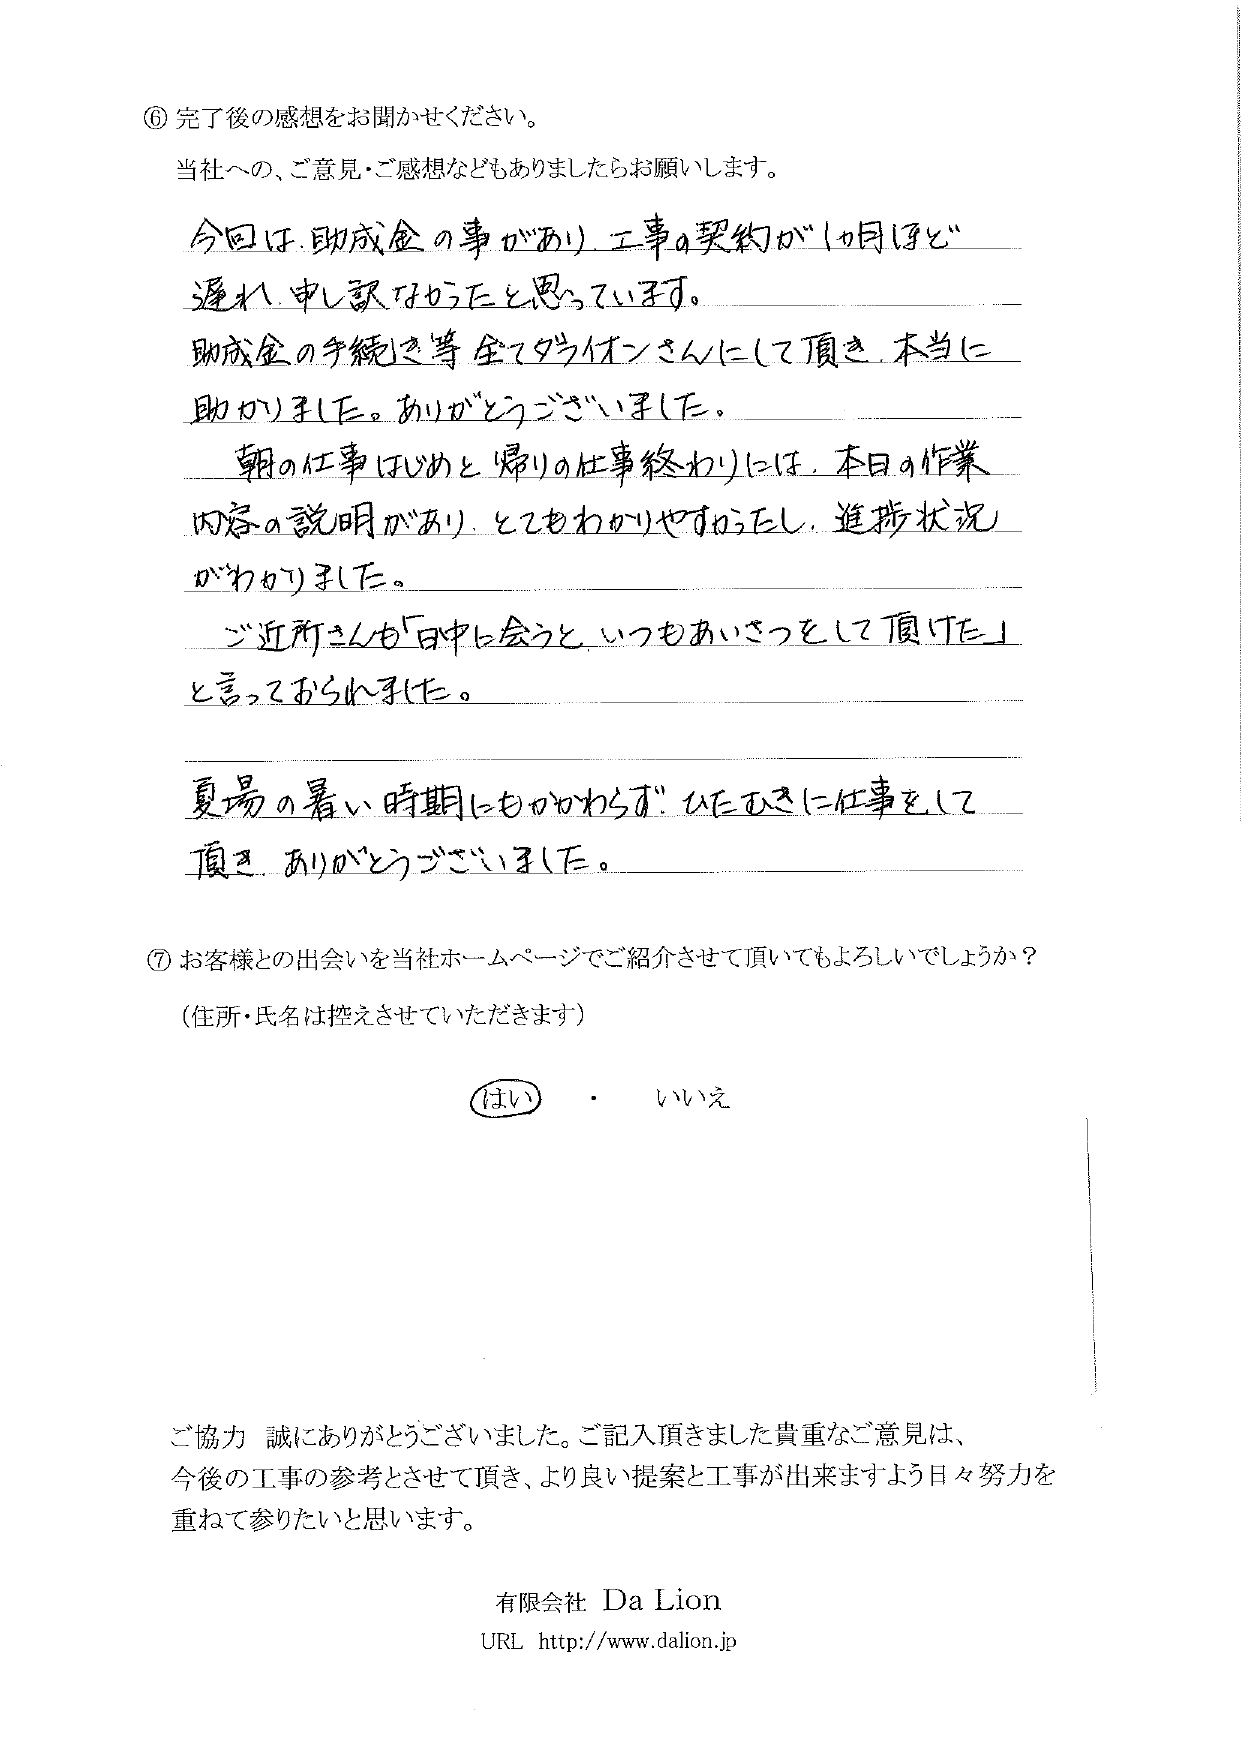 ⑥ 完了後の感想をお聞かせください。
当社への、ご意見・ご感想などもありましたらお願いします。
今回は、助成金の事があり、工事の契約が1ヵ月ほど
遅れ、申し訳なかったと思っています。
助成金の手続き等全てダライオンさんにして頂き、本当に
助かりました。ありがとうございました。
朝の仕事はじめと帰りの仕事終わりには、本日の作業
内容の説明があり、とてもわかりやすかったし、進捗状況
がわかりました。
ご近所さんも「日中に会うと、いつもあいさつをして頂けた」
と言っておられました。
夏場の暑い時期にもかかわらず、ひたむきに仕事をして
頂き、ありがとうございました。
⑦ お客様との出会いを当社ホームページでご紹介させて頂いてもよろしいでしょうか？
（住所・氏名は控えさせていただきます）
はい ・ いいえ
ご協力 誠にありがとうございました。ご記入頂きました貴重なご意見は、
今後の工事の参考とさせて頂き、より良い提案と工事が出来ますよう日々努力を
重ねて参りたいと思います。
有限会社 Da Lion
URL http://www.dalion.jp